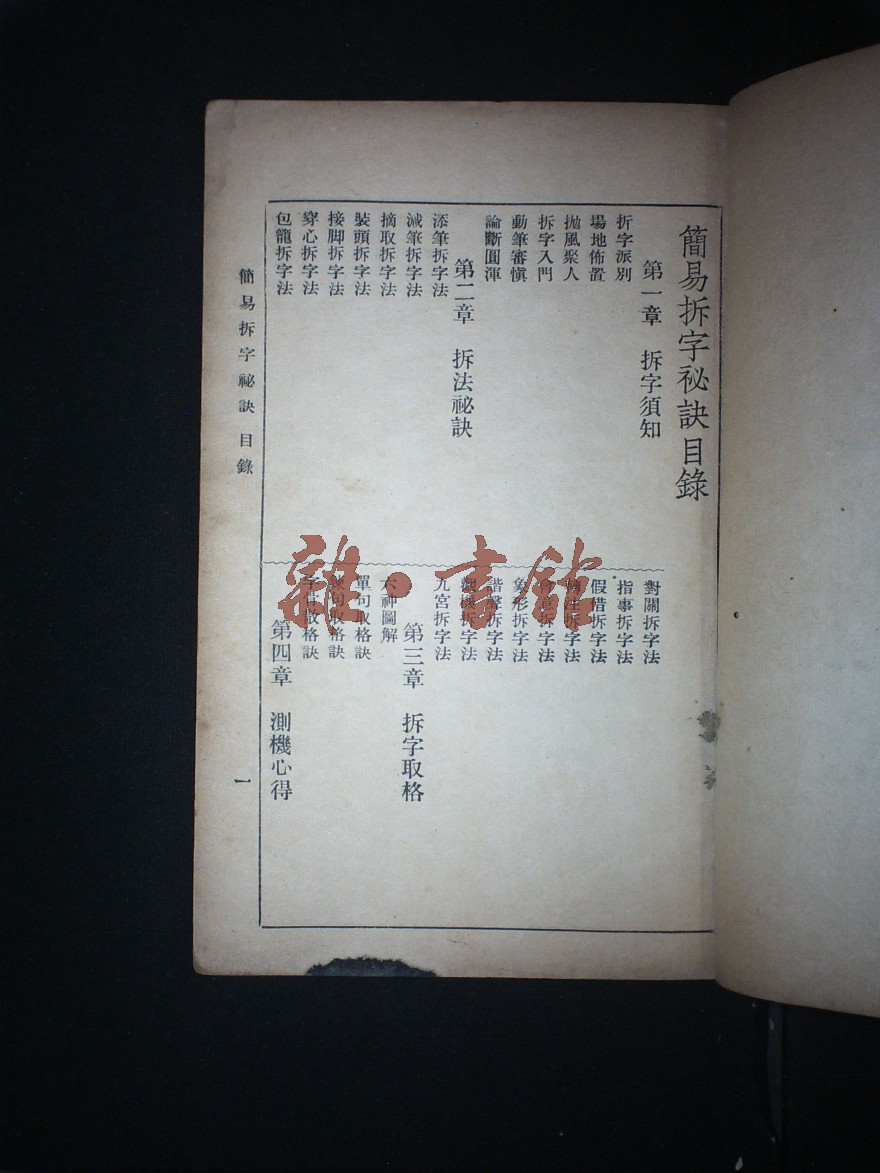 簡易拆字祕訣目錄
第一章 拆字須知
拆字派別
場地佈置
拋風聚人
拆字入門
動筆審愼
論斷圓渾
第二章 拆法祕訣
添筆拆字法
減筆拆字法
摘取拆字法
裝頭拆字法
接脚拆字法
穿心拆字法
包籠拆字法
對關拆字法
指事拆字法
假借拆字法
轉注拆字法
會意拆字法
象形拆字法
諧聲拆字法
觀機拆字法
九宮拆字法
第三章 拆字取格
六神圖解
單句取格訣
取格訣
取格訣
第四章 測機心得
簡易拆字祕訣 目錄
一
雜·書館